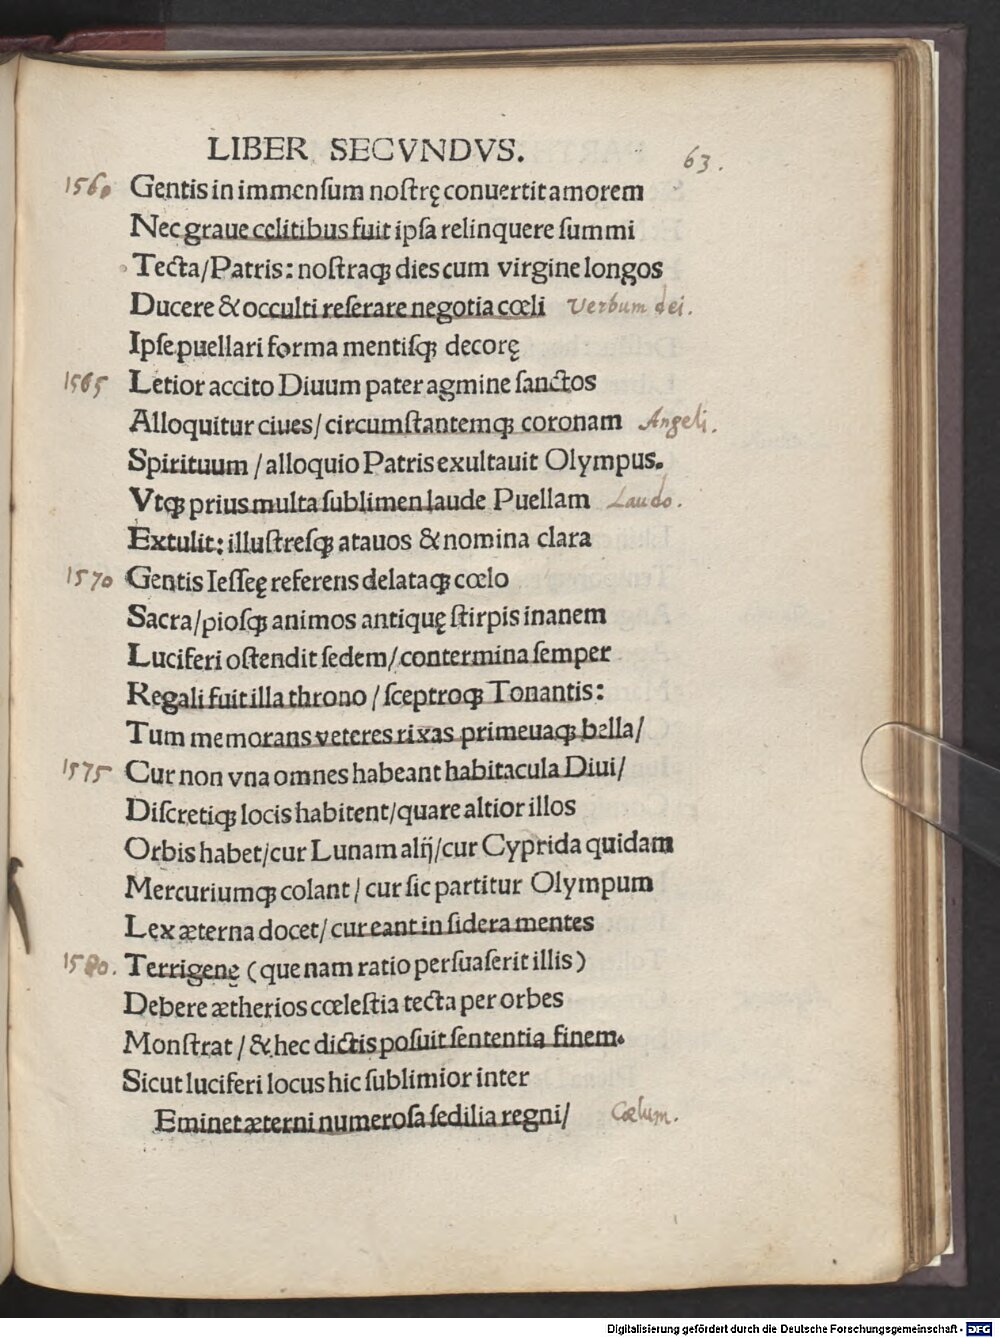 LIBER SECVNDVS. 63.
1560 Gentis in immensum nostrę conuertit amorem
Nec graue cęlitibus fuit ipsa relinquere summi
Tecta/Patris: nostraqꝫ dies cum virgine longos
Ducere & occulti reserare negotia cœli Verbum dei.
Ipse puellari forma mentisqꝫ decorę
1565 Letior accito Diuum pater agmine sanctos
Alloquitur ciues/circumstantemqꝫ coronam Angeli.
Spirituum/alloquio Patris exultauit Olympus.
Vtqꝫ prius multa sublimen laude Puellam Laudo.
Extulit: illustresqꝫ atauos & nomina clara
1570 Gentis Iesseę referens delataqꝫ cœlo
Sacra/piosqꝫ animos antiquę stirpis inanem
Luciferi ostendit sedem/contermina semper
Regali fuit illa throno/sceptroqꝫ Tonantis:
Tum memorans veteres rixas primeuaqꝫ bella/
1575 Cur non vna omnes habeant habitacula Diui/
Discretiqꝫ locis habitent/quare altior illos
Orbis habet/cur Lunam alij/cur Cyprida quidam
Mercuriumqꝫ colant/cur sic partitur Olympum
Lex æterna docet/cur eant in sidera mentes
1580. Terrigenę (que nam ratio persuaserit illis)
Debere ætherios cœlestia tecta per orbes
Monstrat/& hec dictis posuit sententia finem.
Sicut luciferi locus hic sublimior inter
Eminet æterni numerosa sedilia regni/ Cœlum.
Digitalisierung gefördert durch die Deutsche Forschungsgemeinschaft - DFG